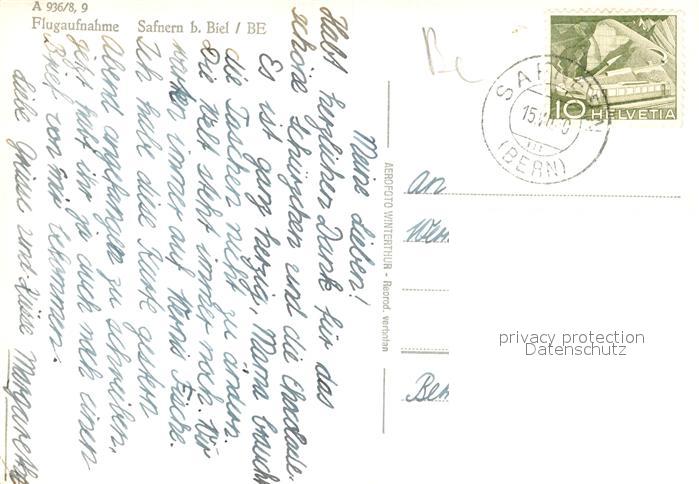 A 936/8, 9
Flugaufnahme Safnern b. Biel / BE
Meine Lieben!
Habt herzlichen Dank für das
schöne Schürzchen und die Chocolade.
Es ist ganz herzig, Mama braucht
die Taschen nicht zu ändern.
Die Welt steht immer noch. Wir
warten immer auf Werris Füchse.
Ich habe diese Karte gestern
Abend angefangen zu schreiben,
jetzt habt ihr ja auch noch einen
Brief von mir bekommen.
Liebe Grüsse und Küsse Margareth
AEROFOTO WINTERTHUR - Reprod. verboten
Be
SAFNERN
15.
(BERN)
10 HELVETIA
An
Bern
privacy protection
Datenschutz